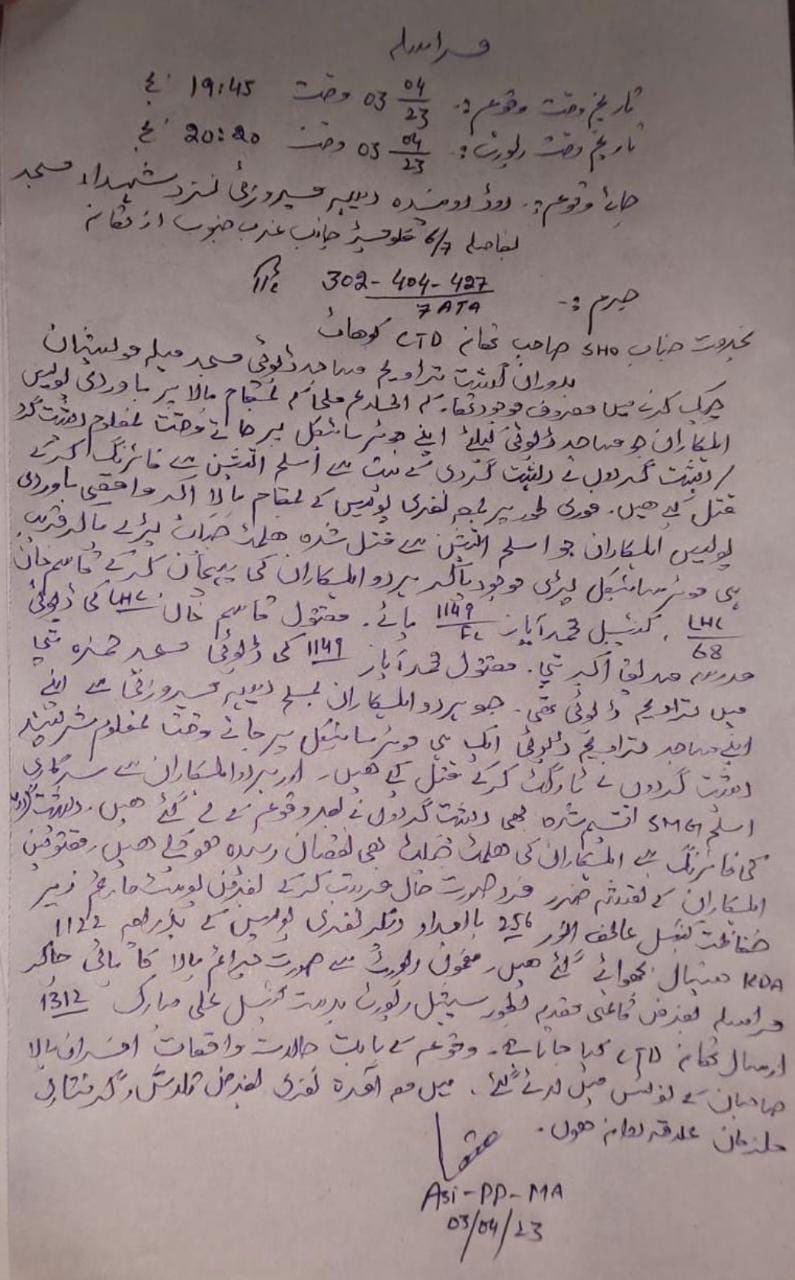 مراسلہ
تاریخ وقت وقوعہ:۔ 03 04/23 وقت 19:45 بجے
تاریخ وقت رپورٹ:۔ 03 04/23 وقت 20:20 بجے
جائے وقوعہ:۔ روڈ دیہہ فیروزئی نزد شہداء مسجد
بفاصلہ 6/7 کلومیٹر جانب غرب جنوب از تھانہ
جرم:۔ 302-404-427 / 7ATA
بخدمت جناب SHO صاحب تھانہ CTD کوہاٹ
دوران گشت تراویح مساجد ڈیوٹی مسجد میلہ
چیک کرنے میں مصروف موجود تھا کہ اطلاع ملی کہ بمقام بالا پر باوردی پولیس
اہلکاران جو مساجد ڈیوٹی کیلئے اپنے موٹرسائیکل پر جاتے وقت نامعلوم دہشت گرد
/ دہشت گردوں نے دہشت گردی کے نیت سے اسلحہ آتشین سے فائرنگ کرکے
قتل کیے ھیں۔ فوری طور پر بمعہ نفری پولیس کے بمقام بالا آکر واقعی باوردی
پولیس اہلکاران جو اسلحہ آتشین سے قتل شدہ پڑے پاکر قریب
ہی موٹرسائیکل پڑی موجود پاکر ہر دو اہلکاران کی پہچان کرکے قاسم خان
LHC/68 ، کنسٹیبل محمد آیاز 1149/FC پائے۔ مقتول قاسم خان LHC کی ڈیوٹی
مدرسہ صدیق اکبر تھی۔ مقتول محمد آیاز 1149 کی ڈیوٹی مسجد حمزہ تھی
میں تراویح ڈیوٹی تھی۔ جو ہر دو اہلکاران مسلح دیہہ فیروزئی سے اپنے
اپنے مساجد تراویح ڈیوٹی ایک ہی موٹرسائیکل پر جاتے وقت نامعلوم شرپسند
دہشت گردوں نے ٹارگٹ کرکے قتل کیے ھیں۔ اور ہر دو اہلکاران سے سرکاری
اسلحہ SMG تقسیم شدہ بھی دہشت گردوں نے بعد وقوعہ لے گئے ھیں۔ دہشت گردوں
کی فائرنگ سے اہلکاران کی بھی نقصان رسیدہ ہوچکے ھیں۔ مقتولین
اہلکاران کے نقشہ ضرر فرد صورت حال مرتب کرکے بغرض پوسٹ مارٹم زیر
حفاظت کنسٹیبل عاطف النور 256 باامداد دیگر نفری پولیس کے بذریعہ 1122
KDA ہسپتال بھجوائے گئے ھیں۔ مضمون رپورٹ سے صورت جرائم بالا کا پائی جاکر
مراسلہ بغرض قائمی مقدمہ بطور سپیشل رپورٹ بدست کنسٹیبل علی مبارک 1312
ارسال تھانہ CTD کیا جاتا ہے۔ وقوعہ کے بابت حالات واقعات افسران بالا
صاحبان کے نوٹس میں لائے گئے۔ میں مع آمدہ نفری بغرض تلاش و گرفتاری
ملزمان علاقہ روانہ ھوں۔
Asi-PP-MA
03/04/23